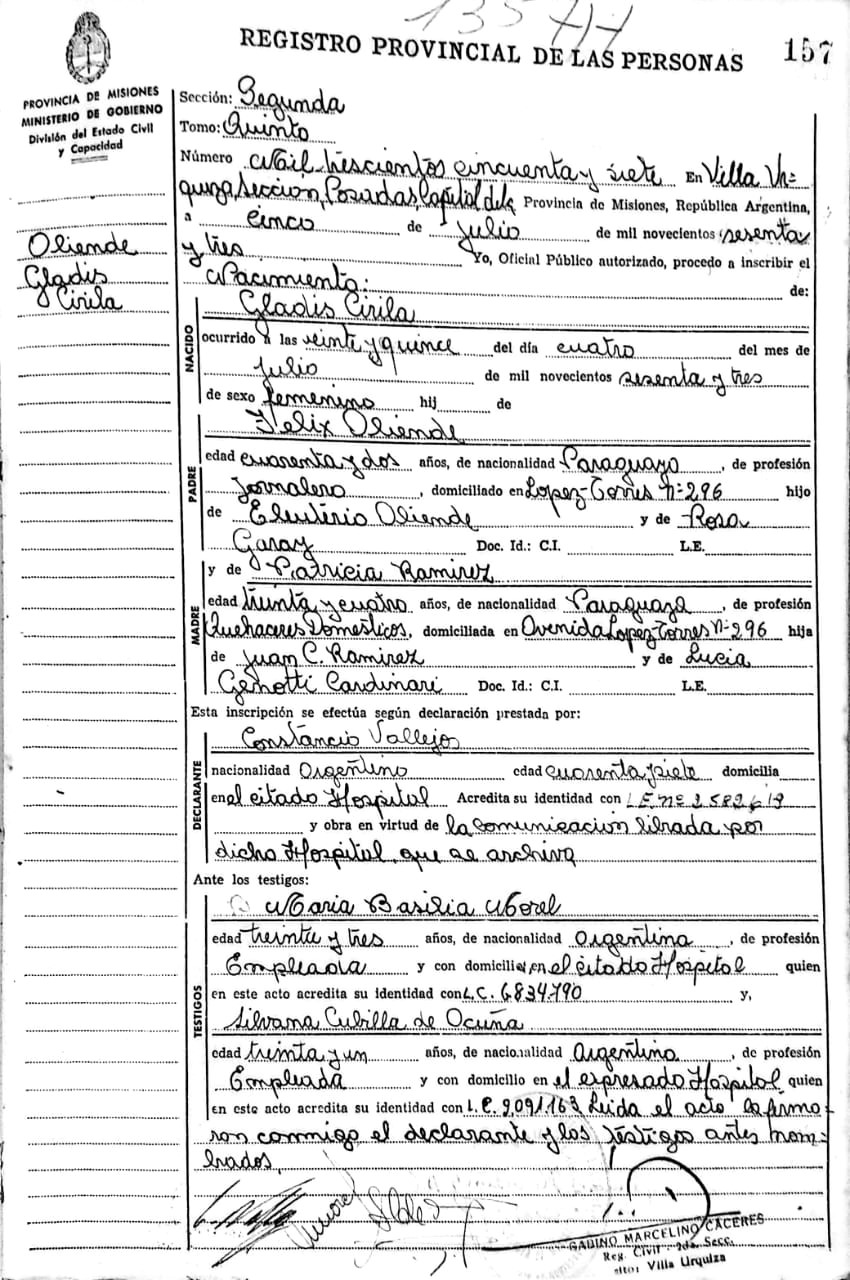 135717
REGISTRO PROVINCIAL DE LAS PERSONAS 157
PROVINCIA DE MISIONES
MINISTERIO DE GOBIERNO
División del Estado Civil
y Capacidad
Oliende
Gladis
Cirila
Sección: Segunda
Tomo: Quinto
Número Mil trescientos cincuenta y siete En Villa Ur=
quiza, Seccion, Posadas, Capital de la Provincia de Misiones, República Argentina,
a cinco de Julio de mil novecientos sesenta
y tres Yo, Oficial Público autorizado, procedo a inscribir el
Nacimiento: de:
NACIDO
Gladis Cirila
ocurrido a las veinte y quince del día cuatro del mes de
Julio de mil novecientos sesenta y tres
de sexo femenino hij de
PADRE
Felix Oliende
edad cuarenta y dos años, de nacionalidad Paraguayo, de profesión
Jornalero, domiciliado en Lopez-Torres Nº 296 hijo
de Eleuterio Oliende y de Rosa
Garay Doc. Id.: C.I. L.E.
MADRE
y de Patricia Ramirez
edad treinta y cuatro años, de nacionalidad Paraguaya, de profesión
Quehaceres Domesticos, domiciliada en Avenida Lopez Torres Nº 296 hija
de Juan C. Ramirez y de Lucia
Genotti Cardinari Doc. Id.: C.I. L.E.
Esta inscripción se efectúa según declaración prestada por:
DECLARANTE
Constancio Vallejos
nacionalidad Argentino edad cuarenta y siete domicilia
en el citado Hospital Acredita su identidad con L.E. nº 2582619
y obra en virtud de la comunicacion librada por
dicho Hospital, que se archiva
Ante los testigos:
TESTIGOS
Maria Basilia Morel
edad treinta y tres años, de nacionalidad Argentina, de profesión
Empleada y con domicilio en el citado Hospital quien
en este acto acredita su identidad con L.C. 6.834.790 y,
Silvana Cubilla de Ocuña
edad treinta y un años, de nacionalidad Argentina, de profesión
Empleada y con domicilio en el expresado Hospital quien
en este acto acredita su identidad con L.C. 9.091.163 Leida el acta la firma-
ron conmigo el declarante y los testigos antes nom-
brados.
GABINO MARCELINO CACERES
Reg. Civil 2da. Secc.
Villa Urquiza